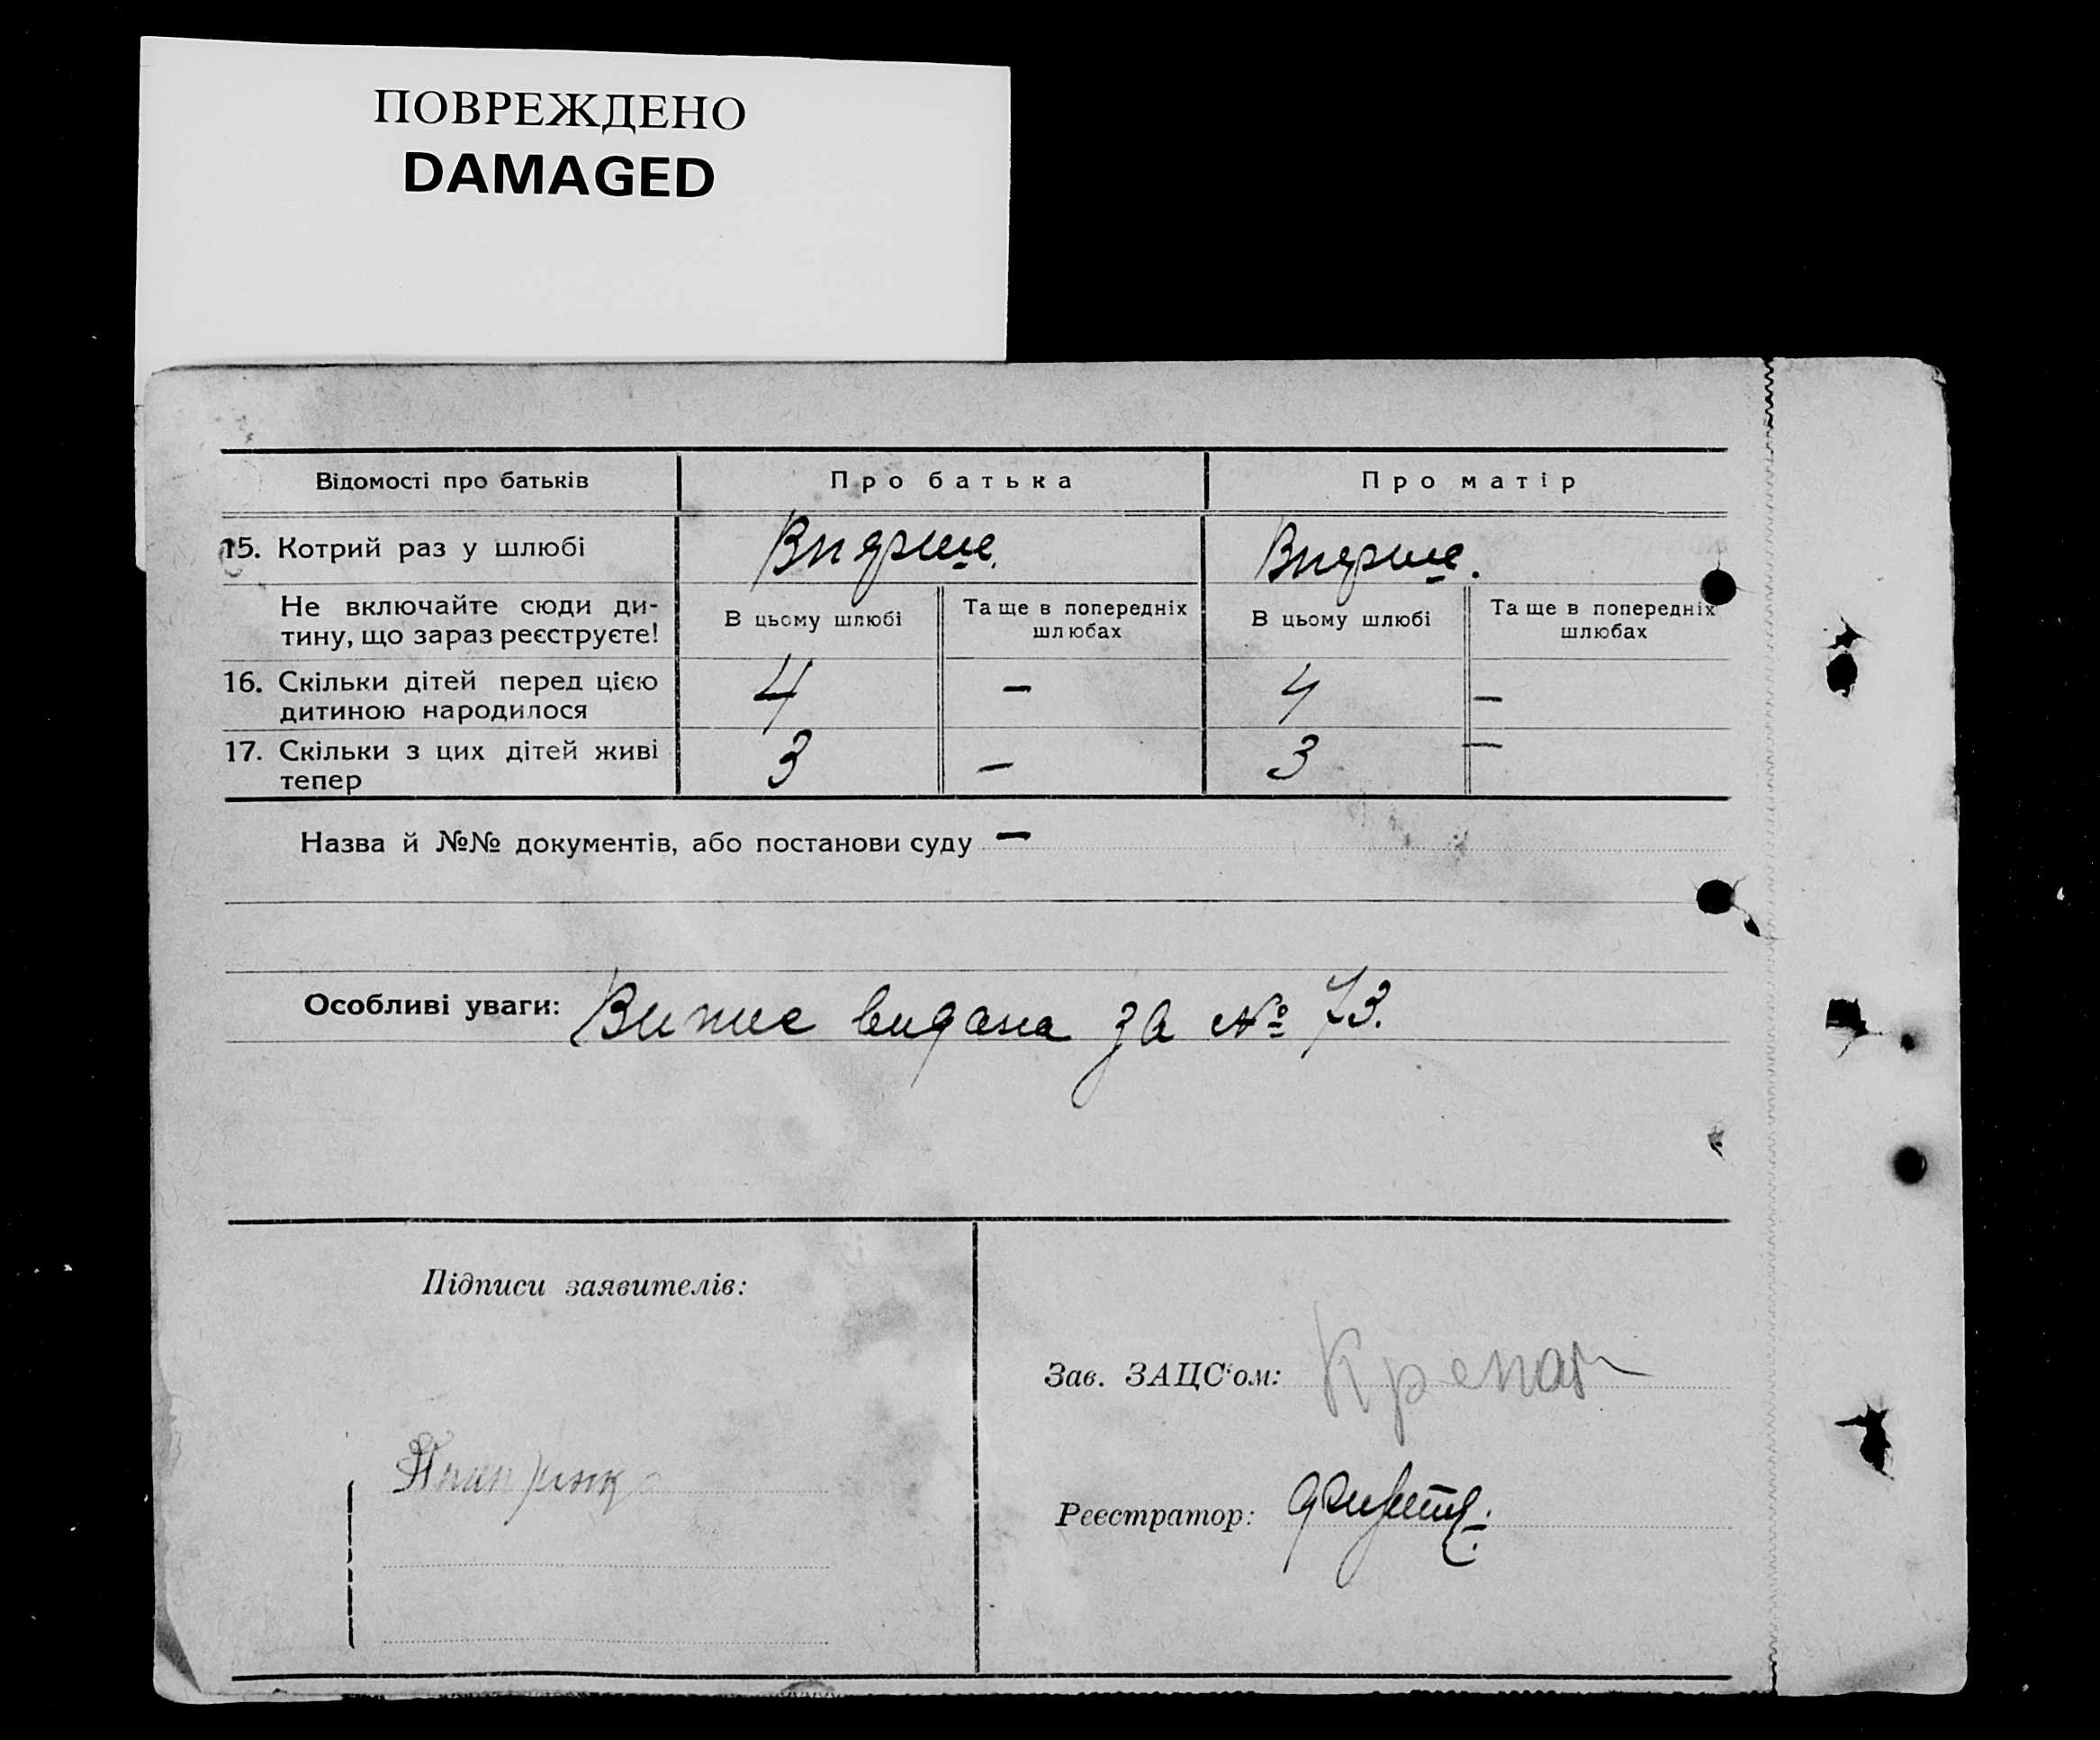 ПОВРЕЖДЕНО
DAMAGED
Відомості про батьків
Про батька
Про матір
15. Котрий раз у шлюбі
Вперше.
Вперше.
Не включайте сюди ди-
тину, що зараз реєструєте!
В цьому шлюбі
Та ще в попередніх
шлюбах
В цьому шлюбі
Та ще в попередніх
шлюбах
16. Скільки дітей перед цією
дитиною народилося
4
–
4
–
17. Скільки з цих дітей живі
тепер
3
–
3
–
Назва й №№ документів, або постанови суду –
Особливі уваги: Випис видана за № 73.
Підписи заявителів:
Зав. ЗАЦС'ом:
Реєстратор: